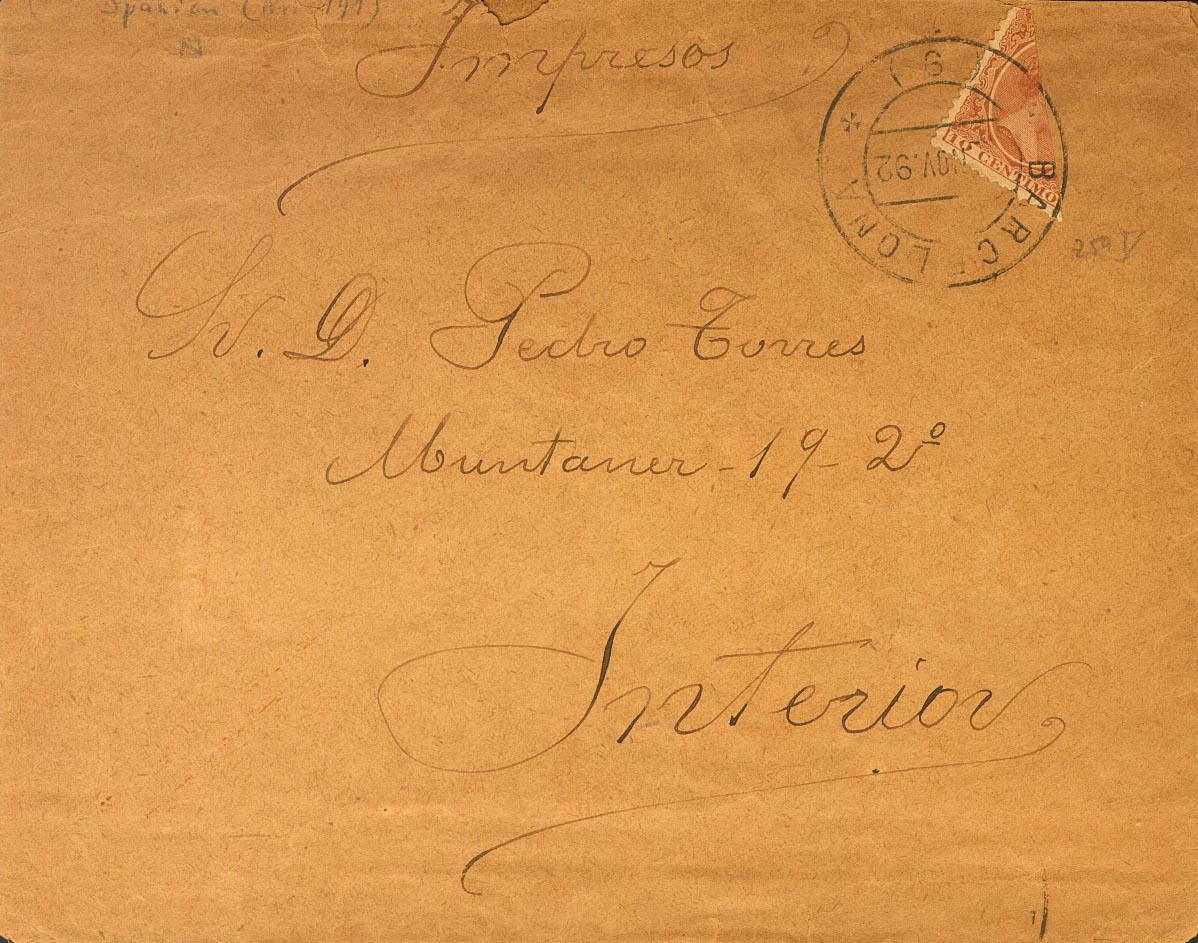 Spanien
Impresos
BARCELONA
NOV. 92
10 CENTIMOS
Sr. D. Pedro Torres
Muntaner - 19 - 2º
Interior